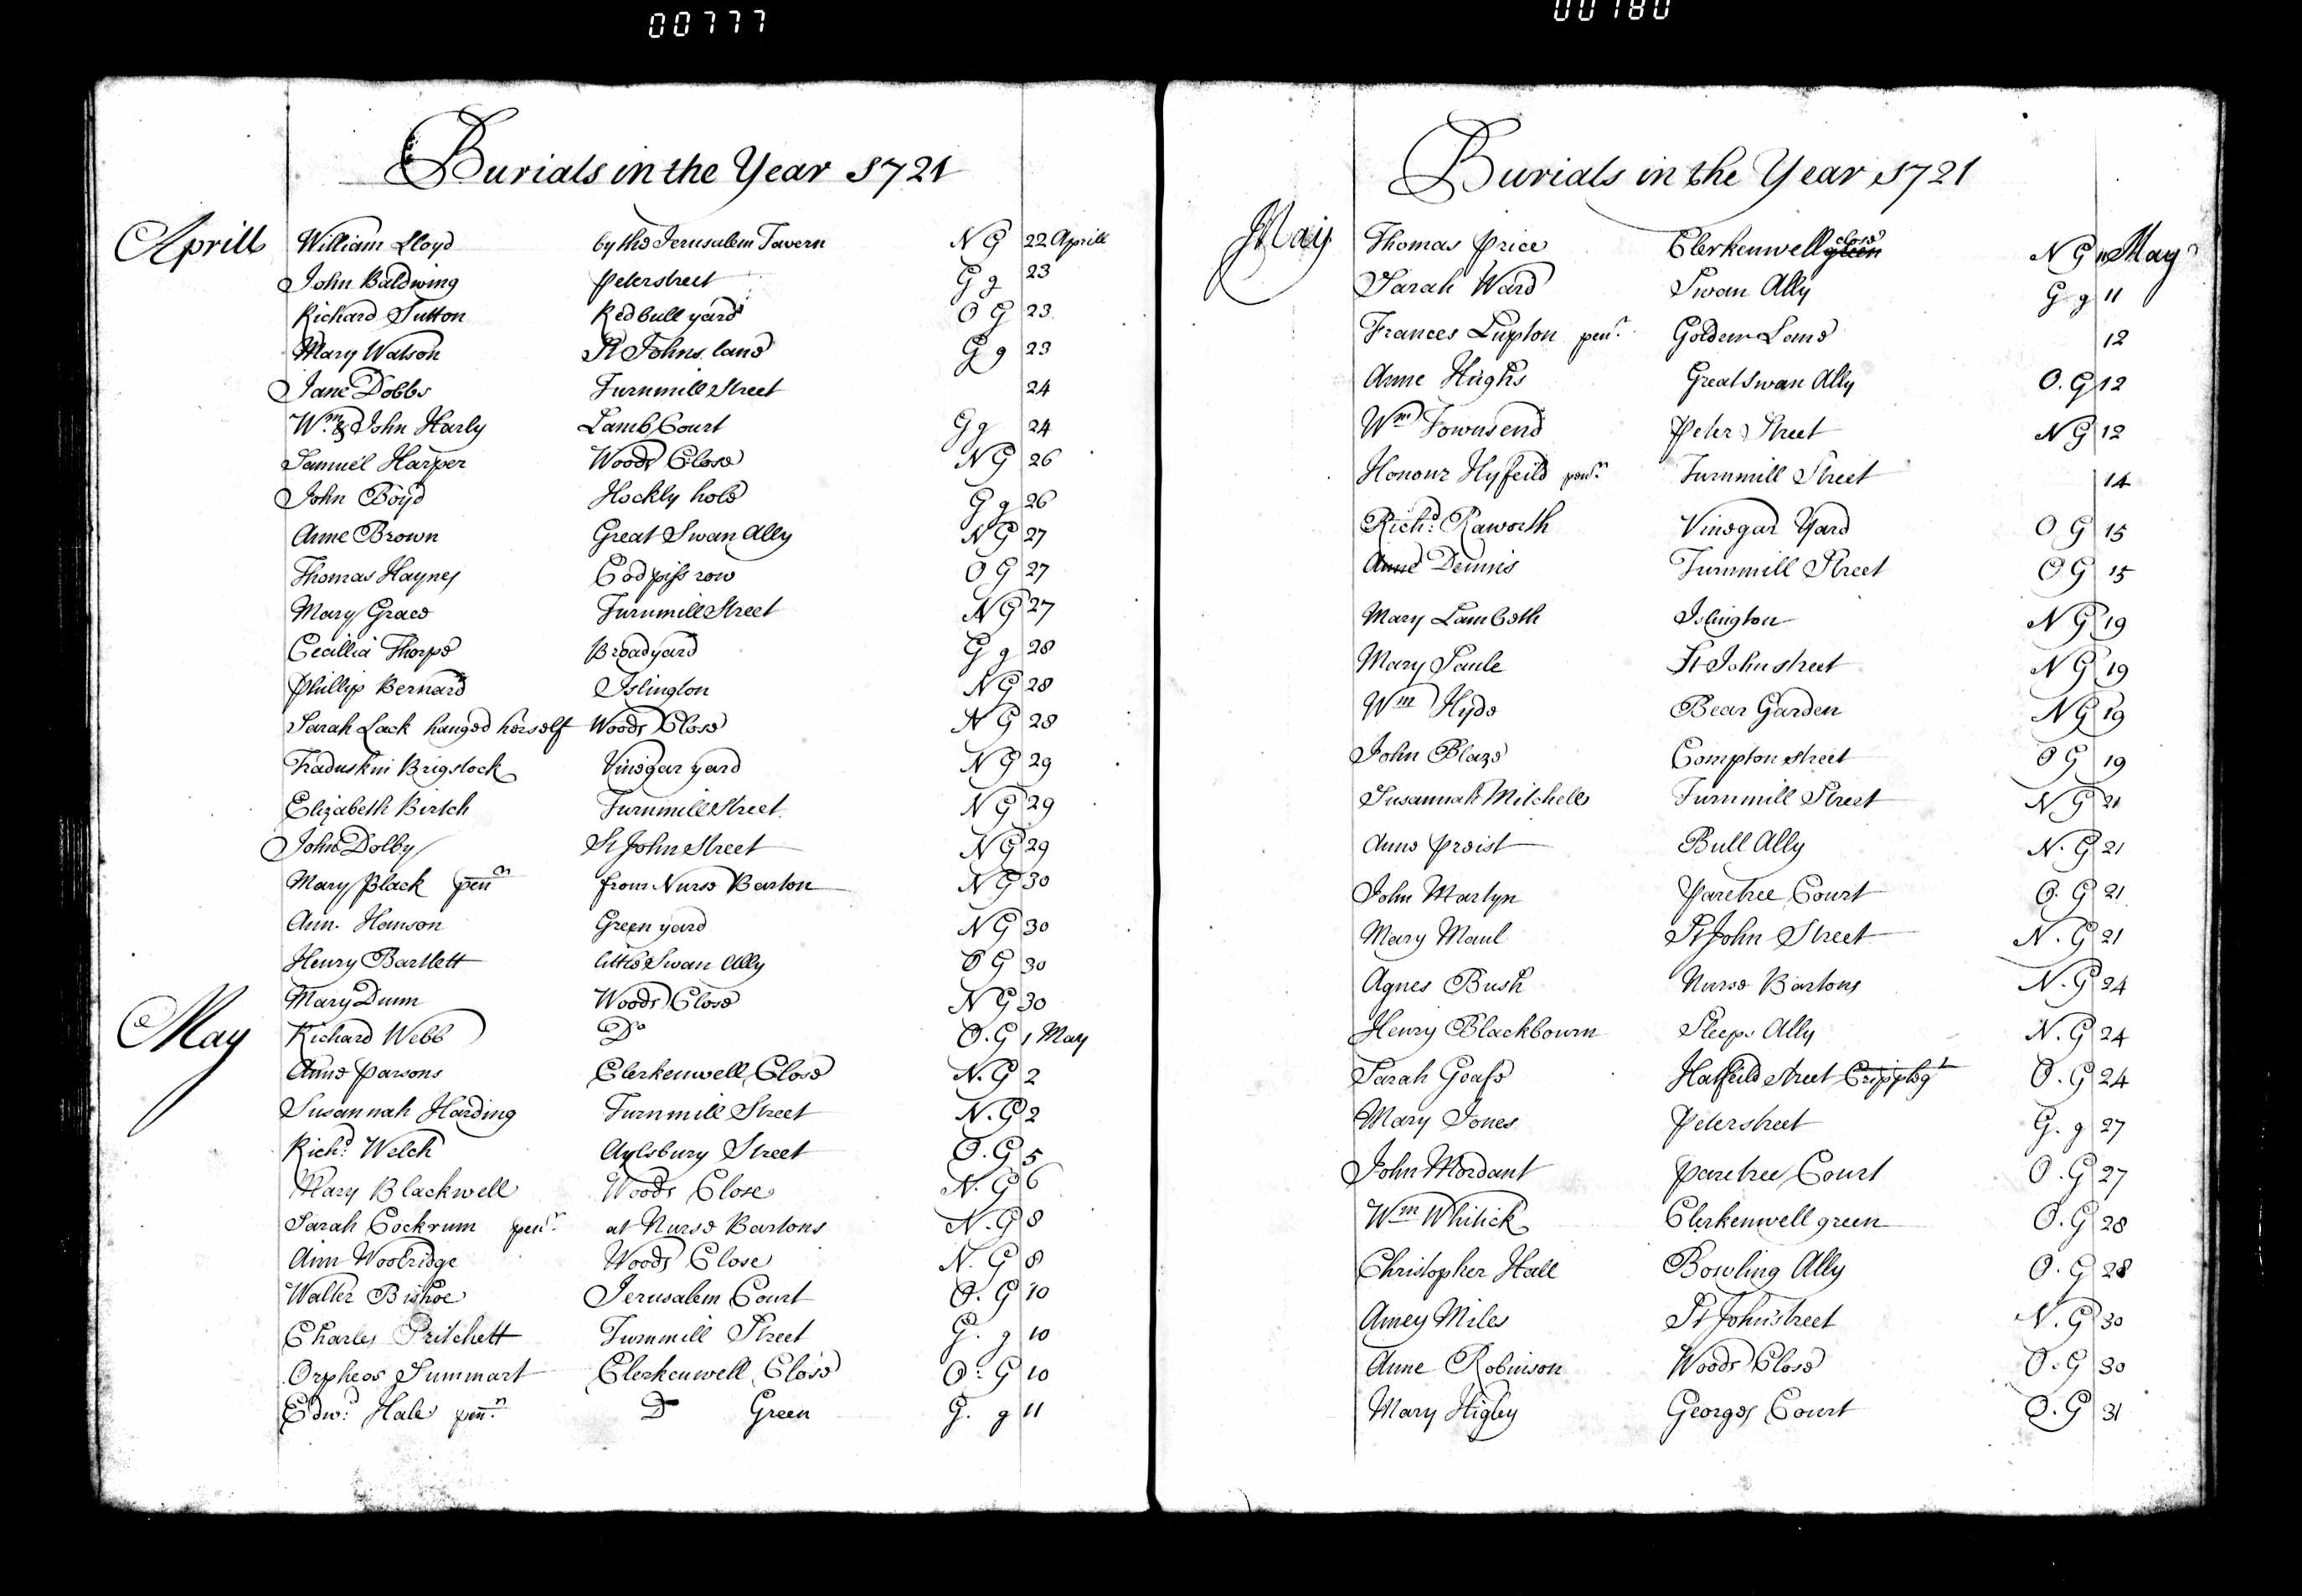 00777
00780
Burials in the Year 1721
Aprill William Lloyd by the Jerusalem Tavern N G 22 Aprill
John Baldwing Peterstreet G g 23
Richard Sutton Redbull yard O G 23
Mary Watson St Johns lane G g 23
Jane Dobbs Turnmill Street 24
Wm & John Harly Lamb Court G g 24
Samuel Harper Woods Close N G 26
John Boyd Hockly hole G g 26
Anne Brown Great Swan Ally N G 27
Thomas Haynes Codpiss row O G 27
Mary Grace Turnmill Street N G 27
Cecillia Thorpe Broadyard G g 28
Phillip Bernard Islington N G 28
Sarah Lack hanged herself Woods Close N G 28
Brigstock Vinegar yard N G 29
Elizabeth Birtch Turnmill Street N G 29
John Dolby St John Street N G 29
Mary Black penn from Nurse Barton N G 30
Ann Hanson Green yard N G 30
Henry Bartlett little Swan Ally O G 30
Mary Dunn Woods Close N G 30
May Richard Webb Do O. G 1 May
Anne Parsons Clerkenwell Close N. G 2
Susannah Harding Turnmill Street N. G 2
Richd: Welch Aylsbury Street O. G 5
Mary Blackwell Woods Close N. G 6
Sarah Cockrum penr at Nurse Bartons N. G 8
Ann Woolridge Woods Close N. G 8
Walter Jerusalem Court O. G 10
Charles Pritchett Turnmill Street G. g 10
Orpheos Summart Clerkenwell Close O. G 10
Edwd: Hale penn D Green G. g 11
Burials in the Year 1721
May Thomas Price Clerkenwell close green N G 11 May
Sarah Ward Swan Ally G g 11
Frances Lupton penr Golden Lane 12
Anne Hughs Great Swan Ally O. G 12
Wm Townsend Peter Street N G 12
Honour Hyfeild penn Turnmill Street 14
Richd: Raworth Vinegar Yard O G 15
Anne Dennis Turnmill Street O G 15
Mary Lambeth Islington N G 19
Mary Saule St John street N G 19
Wm Hyde Bear Garden N G 19
John Blaze Compton street O G 19
Susannah Mitchell Turnmill Street N G 21
Anne Preist Bull Ally N. G 21
John Martyn Paretree Court O. G 21
Mary Maul St John Street N. G 21
Agnes Bush Nurse Bartons N. G 24
Henry Blackbourn Sleeps Ally N. G 24
Sarah Goafe Hatfeild street Cripplegt O. G 24
Mary Jones Peterstreet G. g 27
John Mordant Paretree Court O. G 27
Wm Whitick Clerkenwell green O. G 28
Christopher Hall Bowling Ally O. G 28
Amey Miles St John street N. G 30
Anne Robinson Woods Close O. G 30
Mary Higby Georges Court O. G 31